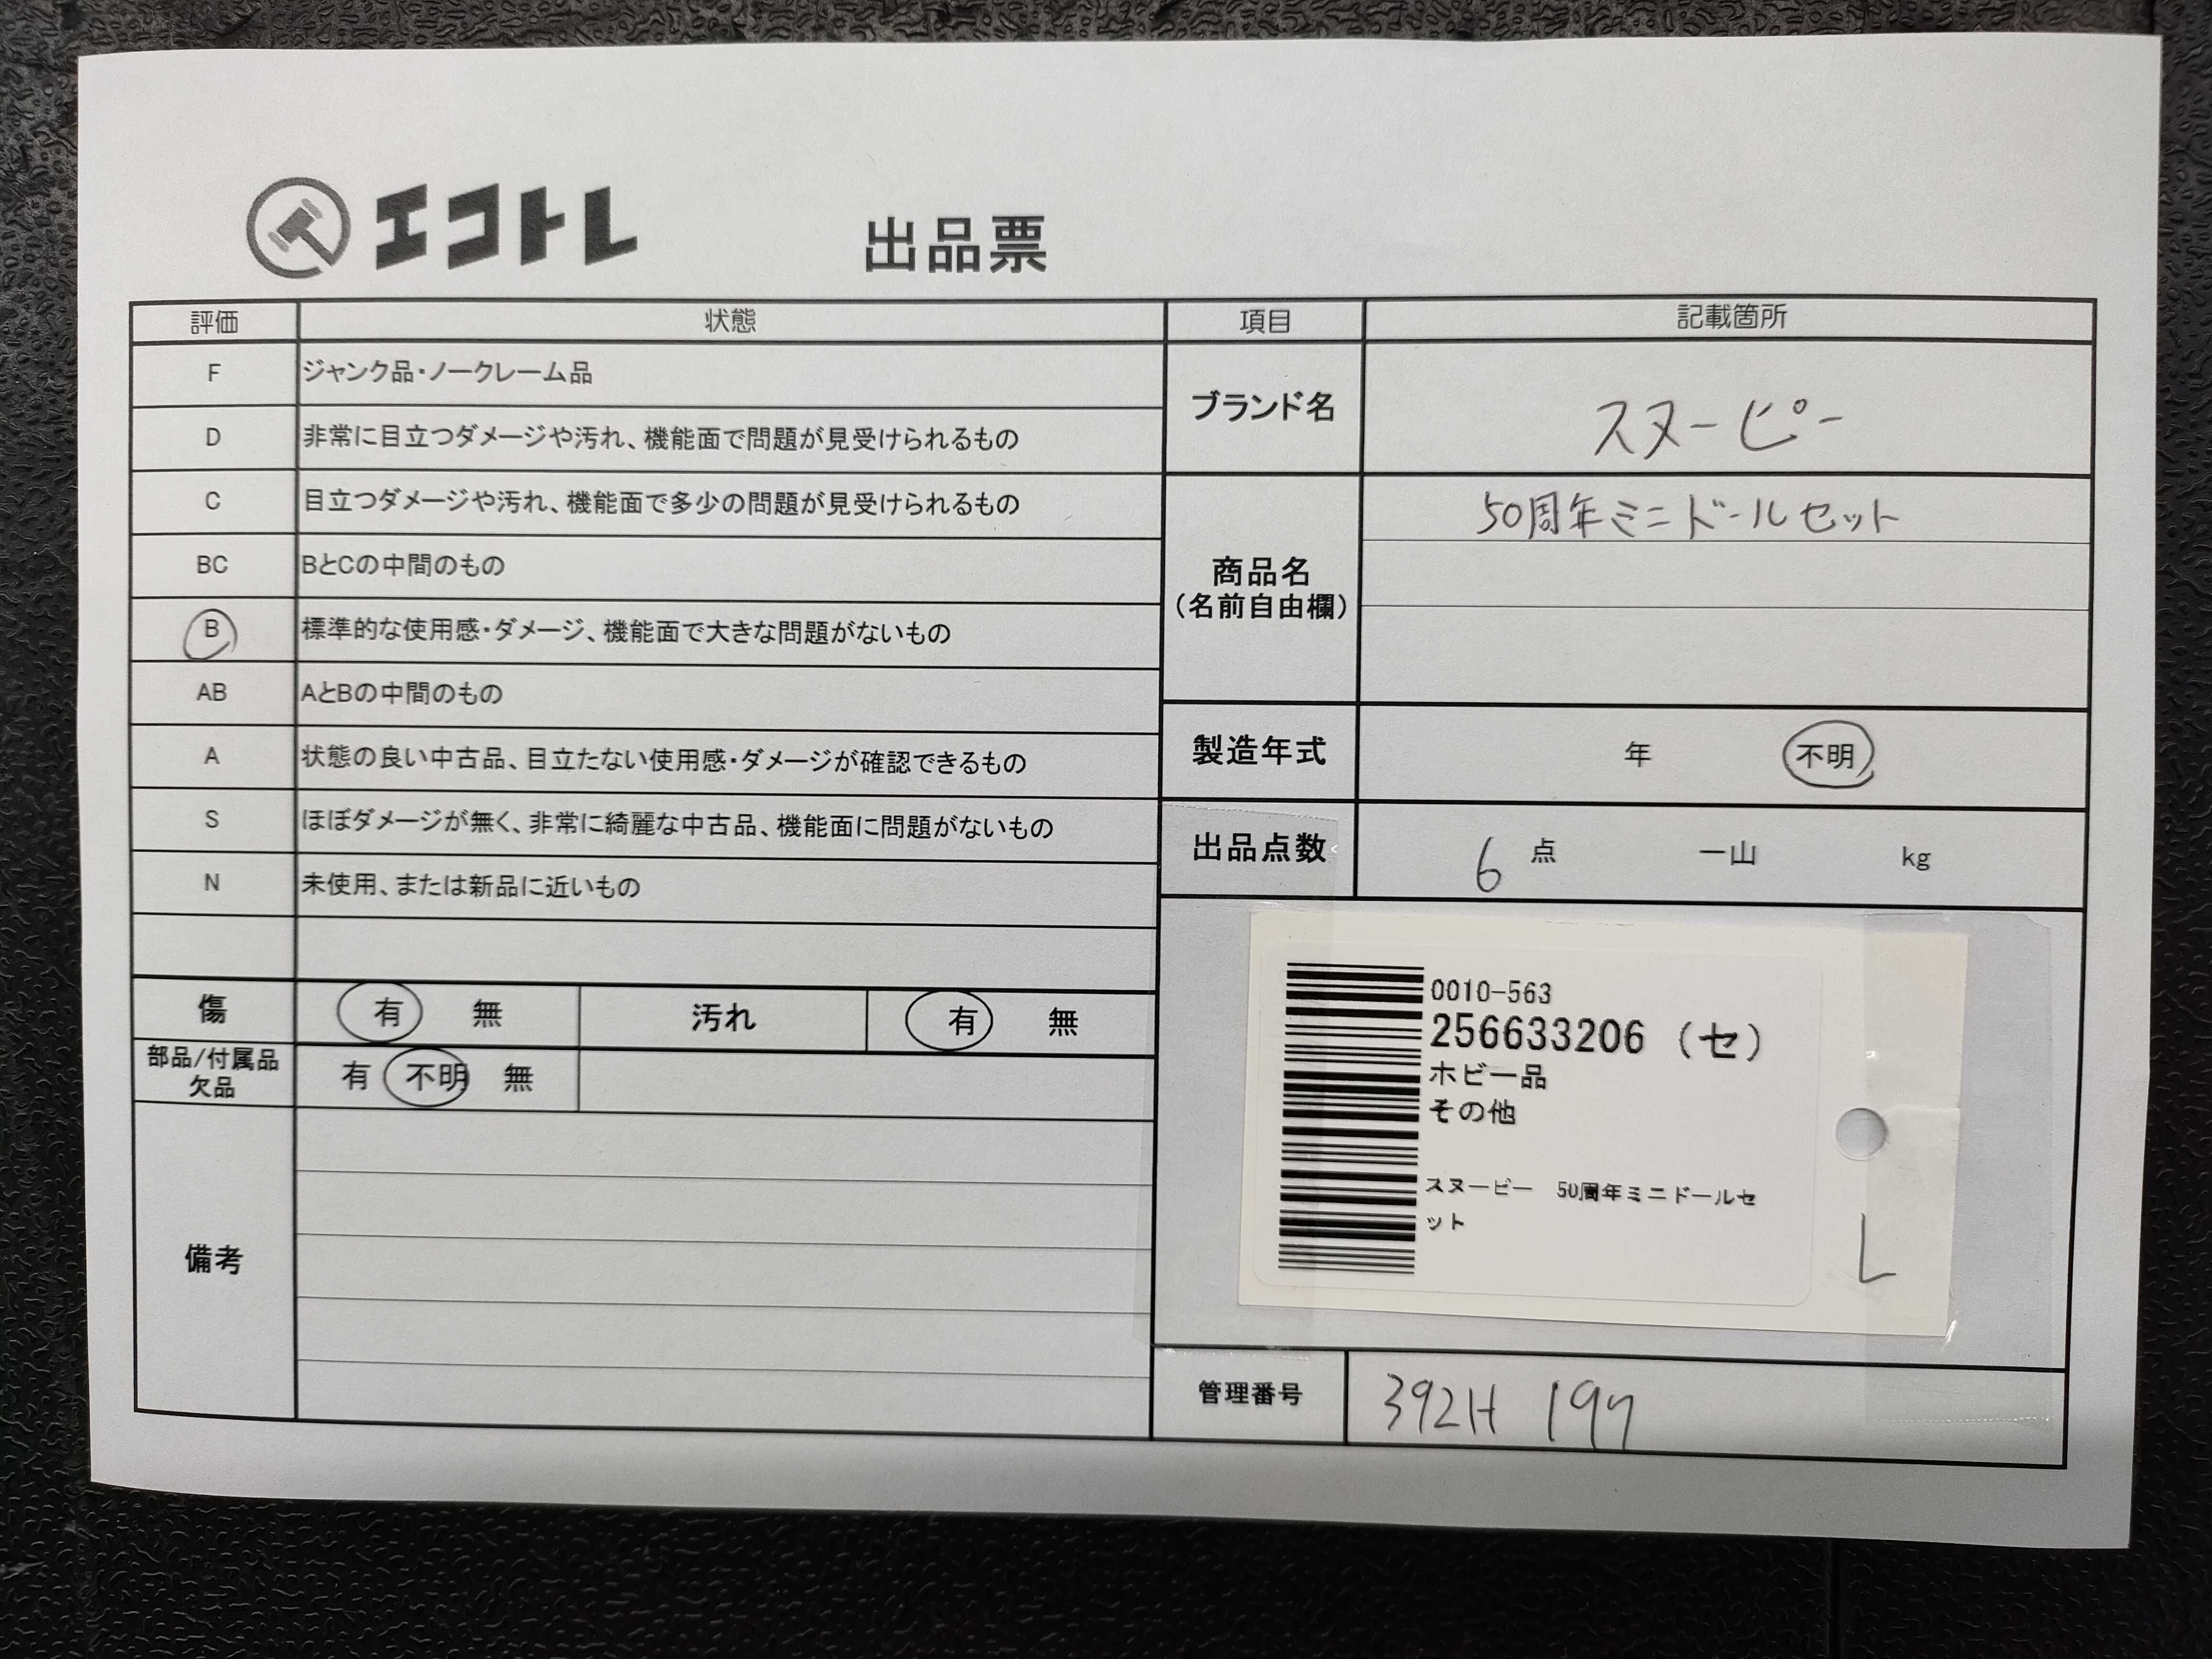 エコトレ
出品票
評価 状態
F ジャンク品・ノークレーム品
D 非常に目立つダメージや汚れ、機能面で問題が見受けられるもの
C 目立つダメージや汚れ、機能面で多少の問題が見受けられるもの
BC BとCの中間のもの
B 標準的な使用感・ダメージ、機能面で大きな問題がないもの
AB AとBの中間のもの
A 状態の良い中古品、目立たない使用感・ダメージが確認できるもの
S ほぼダメージが無く、非常に綺麗な中古品、機能面に問題がないもの
N 未使用、または新品に近いもの
傷 有 無 汚れ 有 無
部品/付属品
欠品
有 不明 無
備考
項目 記載箇所
ブランド名 スヌーピー
商品名
(名前自由欄)
50周年ミニドールセット
製造年式 年 不明
出品点数 6 点 一山 kg
0010-563
256633206 (セ)
ホビー品
その他
スヌーピー 50周年ミニドールセ
ット
L
管理番号 392H 197